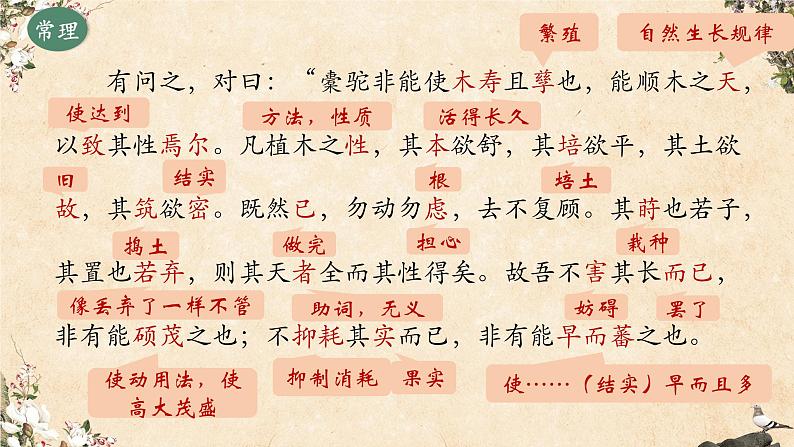 常理
繁殖 自然生长规律
有问之，对曰：“橐驼非能使木寿且孳也，能顺木之天，
使达到 方法，性质 活得长久
以致其性焉尔。凡植木之性，其本欲舒，其培欲平，其土欲
旧 结实 根 培土
故，其筑欲密。既然已，勿动勿虑，去不复顾。其莳也若子，
捣土 做完 担心 栽种
其置也若弃，则其天者全而其性得矣。故吾不害其长而已，
像丢弃了一样不管 助词，无义 妨碍 罢了
非有能硕茂之也；不抑耗其实而已，非有能早而蕃之也。
使动用法，使 抑制消耗 果实 使……（结实）早而且多
高大茂盛